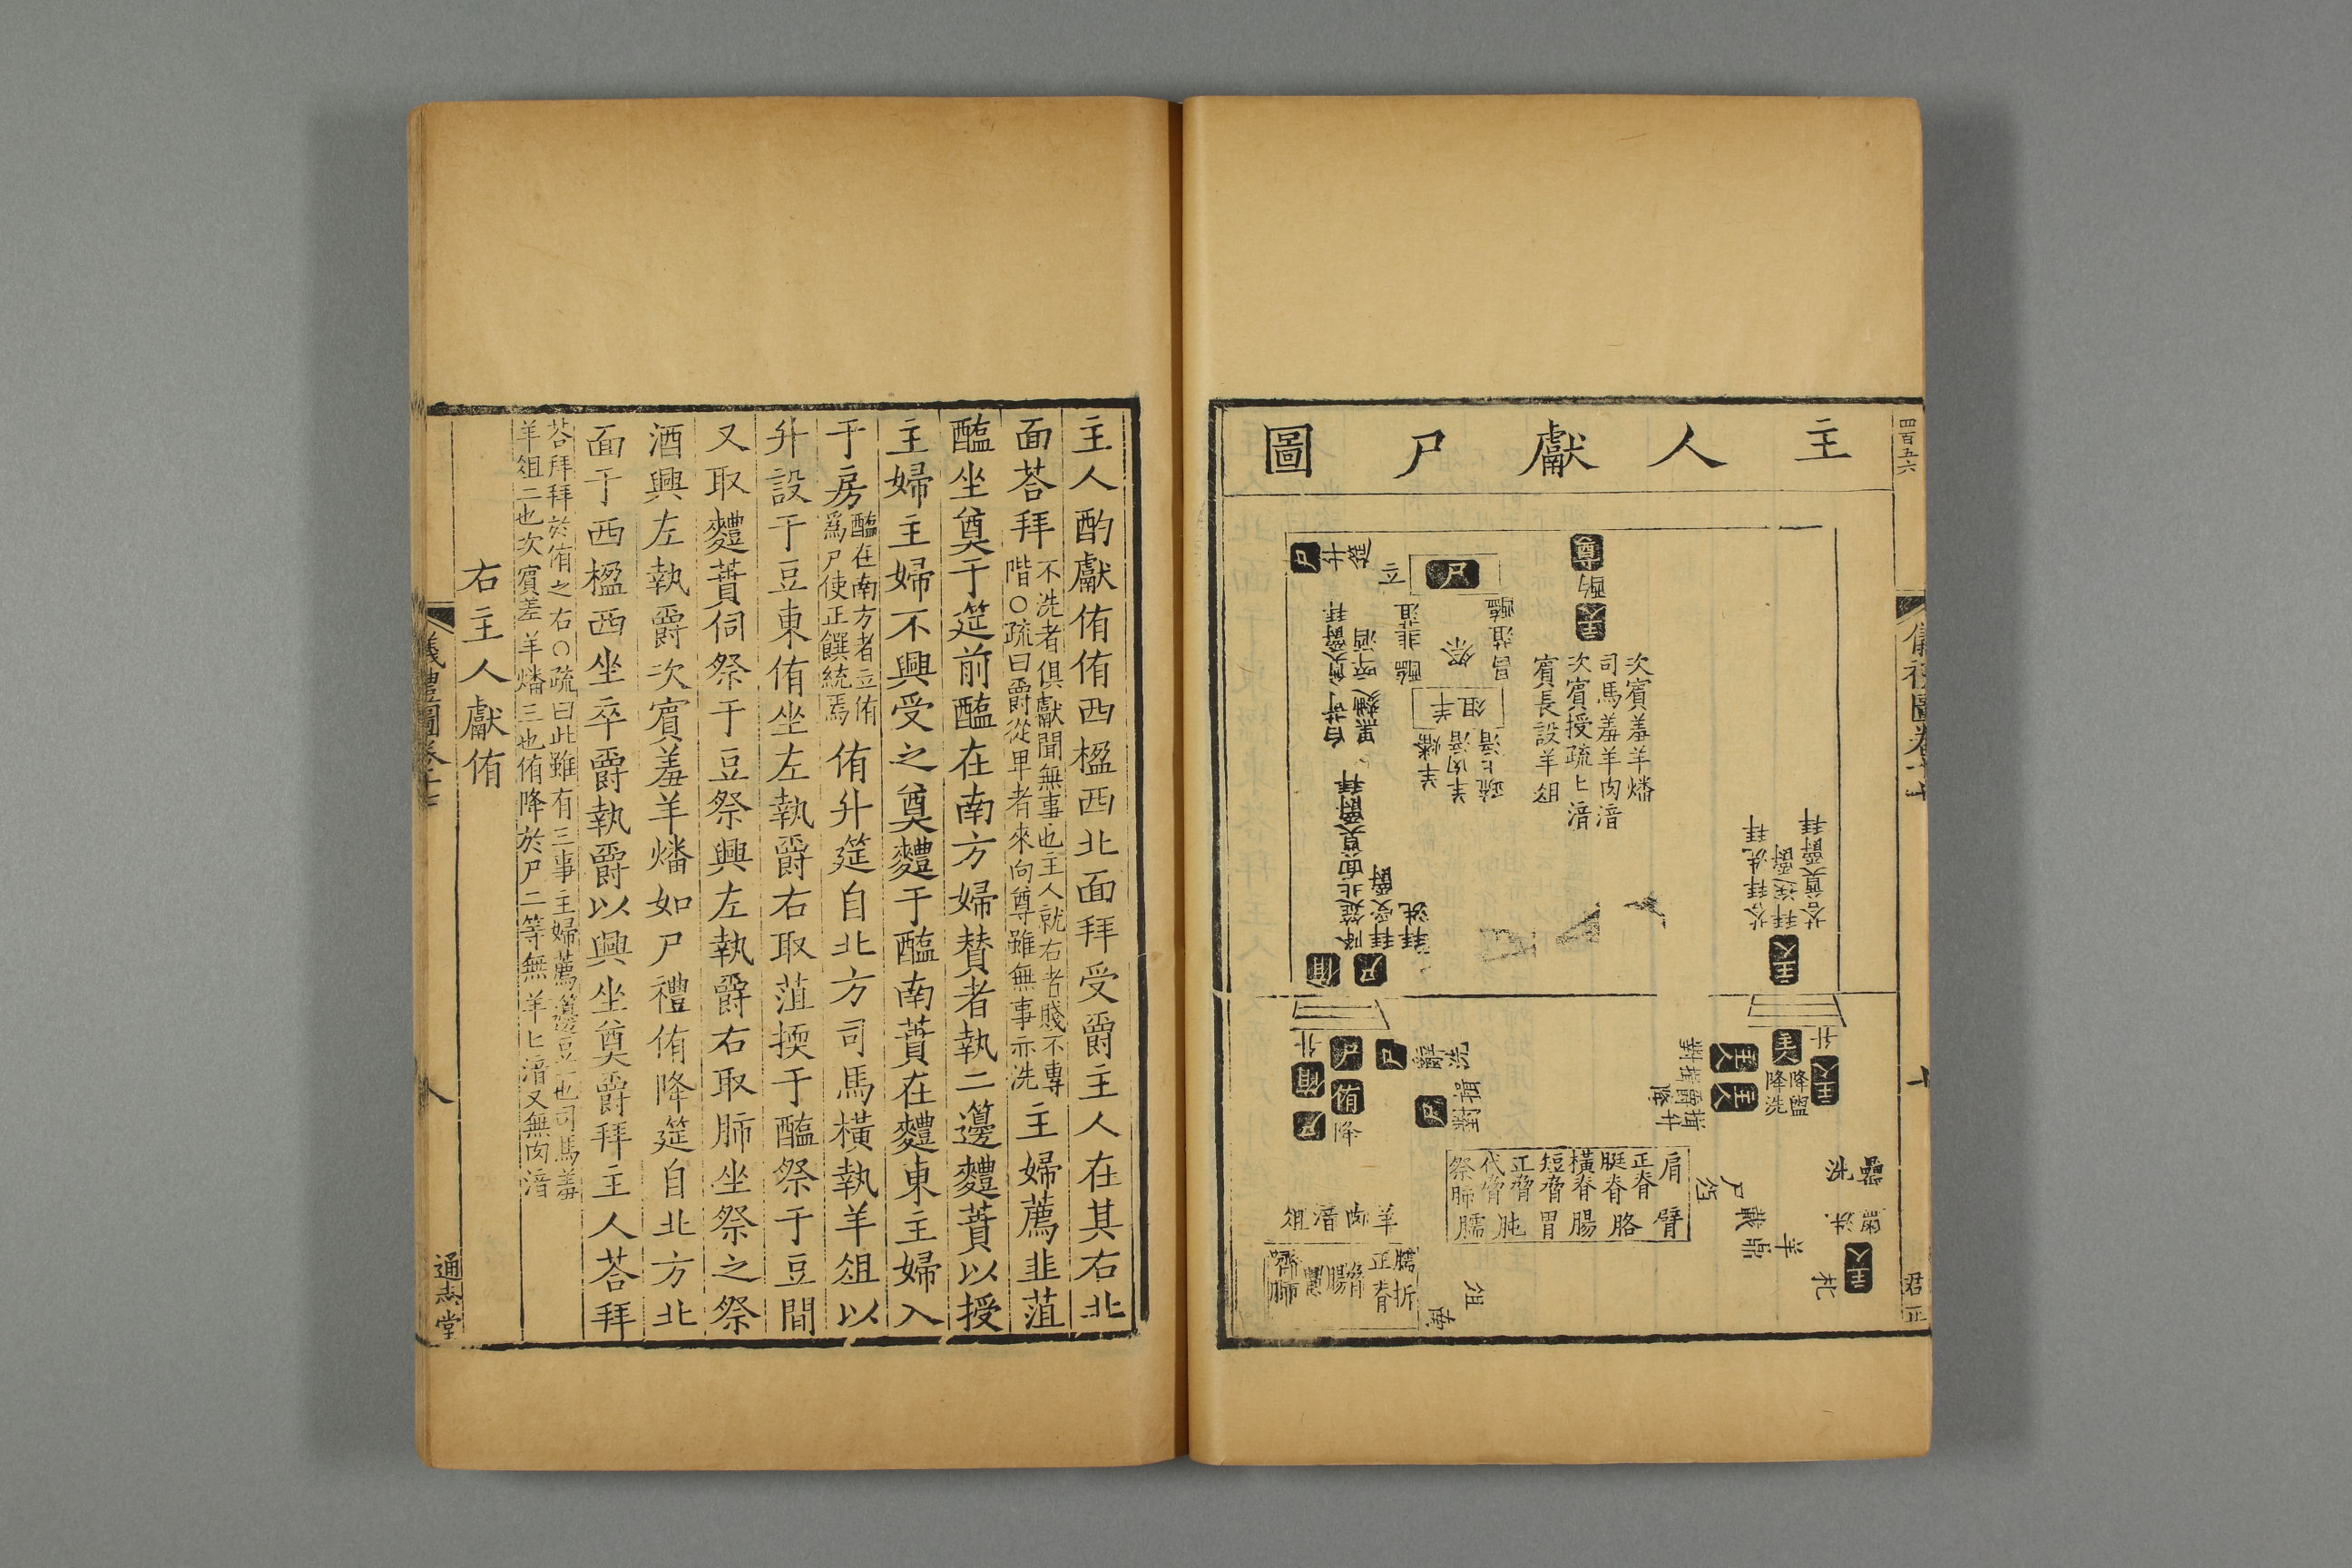 主人獻尸圖
四百五六
尸
升筵
立
尸
尊
酌
主人
韭菹
醓
昌菹
醢
祭
羊俎
羊燔
羊肉湆
疏匕湆
次賓羞羊燔
司馬羞羊肉湆
次賓授疏匕湆
賓長設羊俎
降筵北面奠爵拜
拜受爵
拜洗
侑
尸
主人
荅拜拜洗
拜送爵
荅奠爵拜
升
侑
尸
尸
侑
降
尸
尸
對揖
主人
主人
主人
升
降盥
降洗
主人
肩
正脊
脡脊
橫脊
短脅
正脅
代脅
祭肺
臂
胳
腸
胃
肫
臑
羊肉湆俎
臑折
正脊
嚌肺
羊鼎
俎
主人
君正
主人酌獻侑侑西楹西北面拜受爵主人在其右北
面荅拜不洗者俱獻閒無事也主人就右者賤不專階○疏曰爵從卑者來向尊雖無事亦洗主婦薦韭菹
醓坐奠于筵前醓在南方婦贊者執二籩麷蕡以授
主婦主婦不興受之奠麷于醓南蕡在麷東主婦入
于房醓在南方者立侑爲尸使正饌統焉侑升筵自北方司馬橫執羊俎以
升設于豆東侑坐左執爵右取菹揳于醓祭于豆間
又取麷蕡同祭于豆祭興左執爵右取肺坐祭之祭
酒興左執爵次賓羞羊燔如尸禮侑降筵自北方北
面于西楹西坐卒爵執爵以興坐奠爵拜主人荅拜
荅拜拜於侑之右○疏曰此雖有三事主婦薦籩豆一也司馬羞
羊俎二也次賓羞羊燔三也侑降於尸二等無羊匕湆又無肉湆
右主人獻侑
儀禮圖卷十七
八
通志堂